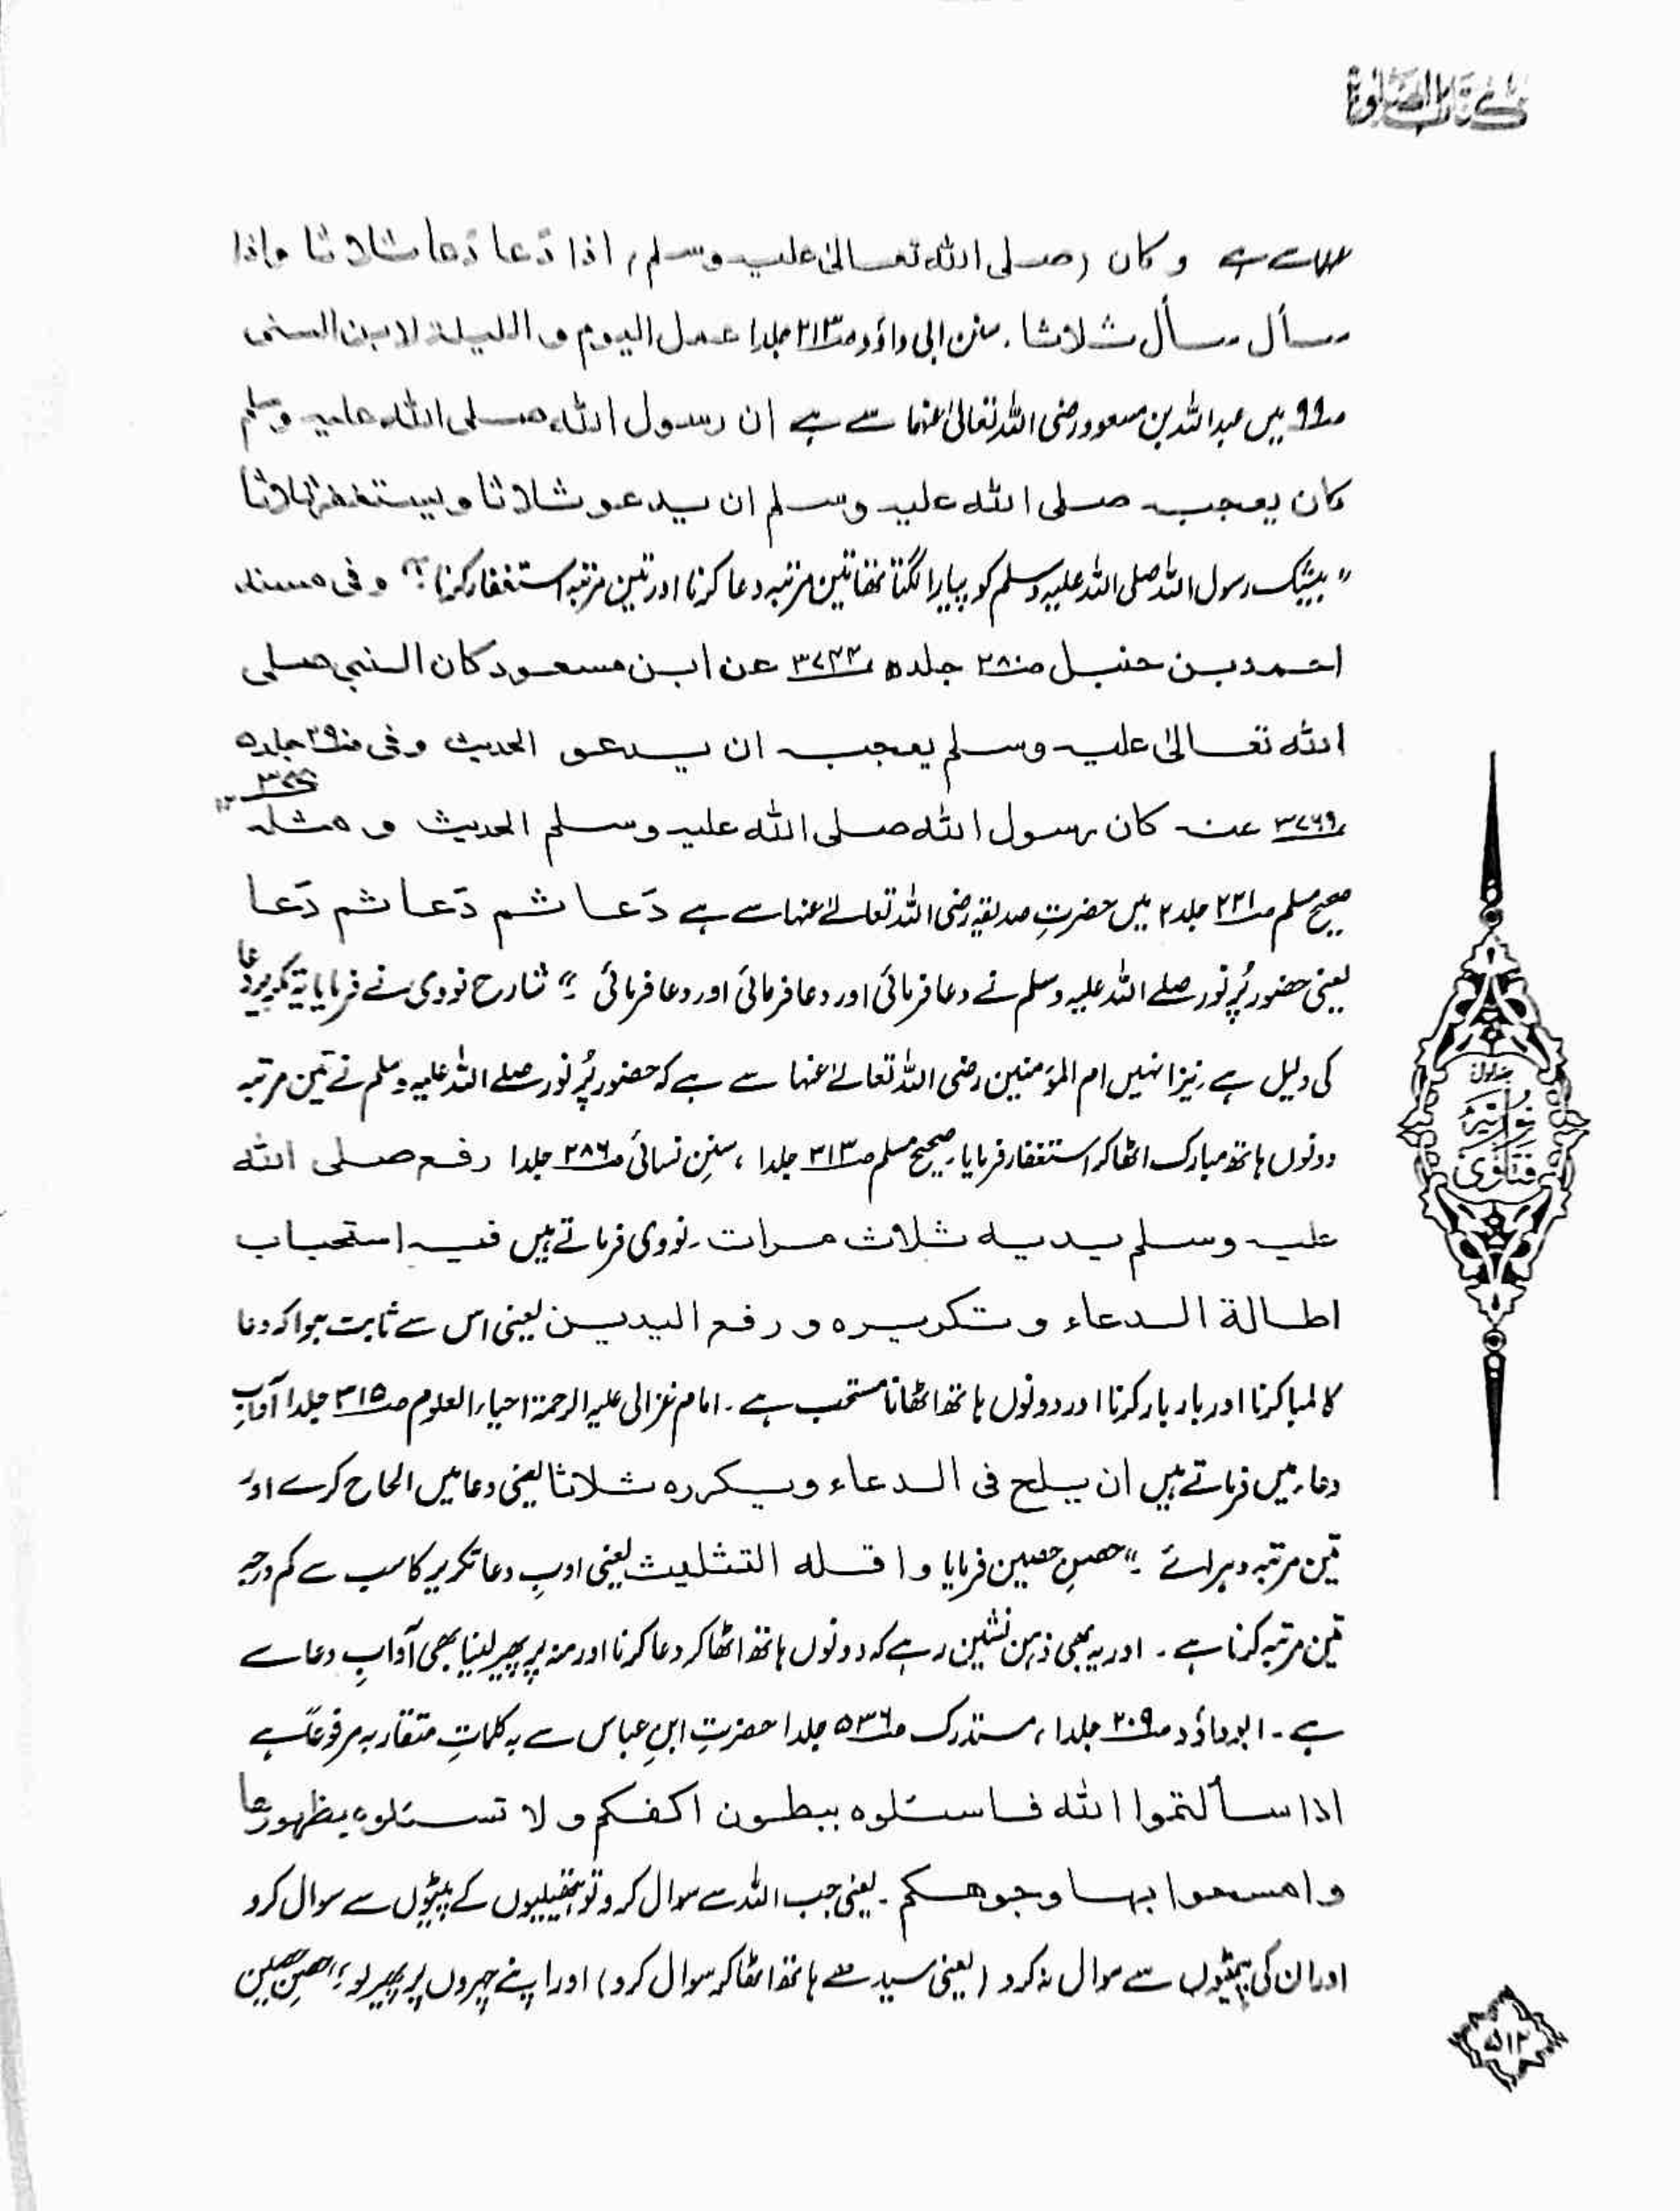 کتاب الصلوٰۃ
سے ہے وکان (صلی اللہ تعالیٰ علیہ وسلم) اذا دَعا دَعا ثلاثا واذا
سأل سأل ثلاثا، سنن ابی داؤد صـ۲۱۳ جلد۱ عمل الیوم و اللیلۃ لابن السنی
صـ۹۹ میں عبداللہ بن مسعود رضی اللہ تعالیٰ عنہما سے ہے ان رسول اللہ صلی اللہ علیہ وسلم
کان یعجبہ صلی اللہ علیہ وسلم ان یدعو ثلاثا ویستغفر ثلاثا
”بیشک رسول اللہ صلی اللہ علیہ وسلم کو پیارا لگتا تھا تین مرتبہ دعا کرنا اور تین مرتبہ استغفار کرنا“ وفی مسند
احمد بن حنبل صـ۲۸۰ جلد۵ ۳۷۴۴ عن ابن مسعود کان النبی صلی
اللہ تعالیٰ علیہ وسلم یعجبہ ان یدعو الحدیث وفی صـ۲۹۰ جلد۵
۳۷۶۹ عنہ کان رسول اللہ صلی اللہ علیہ وسلم الحدیث و مثلہ
صحیح مسلم صـ۲۲۱ جلد۲ میں حضرتِ صدیقہ رضی اللہ تعالےٰ عنہا سے ہے دَعا ثم دَعا ثم دَعا
یعنی حضور پُرنور صلے اللہ علیہ وسلم نے دعا فرمائی اور دعا فرمائی اور دعا فرمائی“ شارح نووی نے فرمایا یہ تکریر دعا
کی دلیل ہے، نیز انہیں ام المؤمنین رضی اللہ تعالےٰ عنہا سے ہے کہ حضور پُرنور صلے اللہ علیہ وسلم نے تین مرتبہ
دونوں ہاتھ مبارک اٹھا کر استغفار فرمایا، صحیح مسلم صـ۳۱۳ جلد۱، سننِ نسائی صـ۲۸۶ جلد۱ رفع صلی اللہ
علیہ وسلم یدیہ ثلاث مرات۔ نووی فرماتے ہیں فیہ استحباب
اطالۃ الدعاء وتکریرہ و رفع الیدین یعنی اس سے ثابت ہوا کہ دعا
کا لمبا کرنا اور بار بار کرنا اور دونوں ہاتھ اٹھانا مستحب ہے۔ امام غزالی علیہ الرحمۃ احیاء العلوم صـ۳۱۵ جلد۱ آدابِ
دعاء میں فرماتے ہیں ان یلح فی الدعاء ویکررہ ثلاثا یعنی دعا میں الحاح کرے اور
تین مرتبہ دہرائے“ حصنِ حصین فرمایا واقلہ التثلیث یعنی ادبِ دعا تکریر کا سب سے کم درجہ
تین مرتبہ کرنا ہے۔ اور یہ بھی ذہن نشین رہے کہ دونوں ہاتھ اٹھا کر دعا کرنا اور منہ پر پھیر لینا بھی آدابِ دعا سے
ہے۔ ابو داؤد صـ۲۰۹ جلد۱، مستدرک صـ۵۳۶ جلد۱ حضرتِ ابنِ عباس سے بہ کلماتِ متقاربہ مرفوعاً ہے
اذا سألتموا اللہ فاسئلوہ ببطون اکفکم ولا تسئلوہ بظہورہا
وامسحوا بہا وجوھکم۔ یعنی جب اللہ سے سوال کرو تو ہتھیلیوں کے پیٹوں سے سوال کرو
اور ان کی پیٹھوں سے سوال نہ کرو (یعنی سیدھے ہاتھ اٹھا کر سوال کرو) اور اپنے چہروں پر پھیر لو، حصنِ حصین
جلداول
فتاویٰ نوریہ
۵۱۲